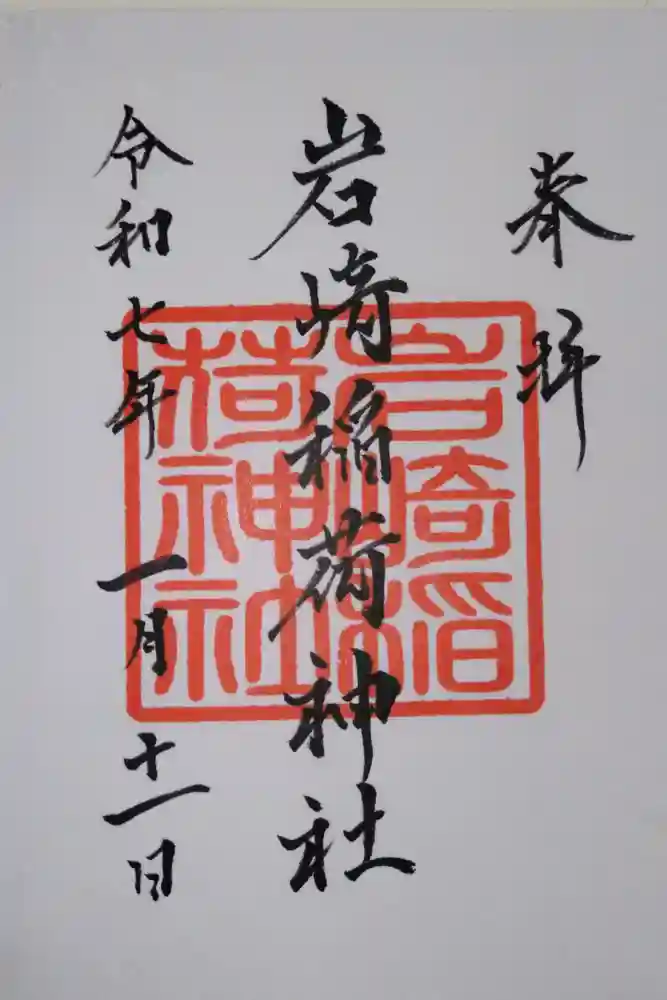 奉拝
岩崎稲荷神社
岩崎稲
荷神社
令和七年一月十一日